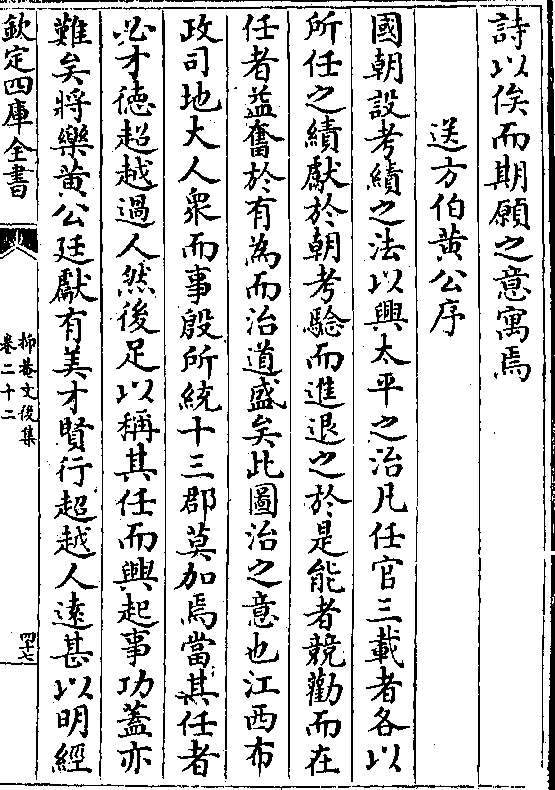 詩以俟而期願之意寓焉
送方伯黄公序
國朝設考績之法以興太平之治凡任官三載者各以
所任之績獻於朝考騐而進退之於是能者競勸而在
任者益奮於有為而治道盛矣此圖治之意也江西布
政司地大人衆而事殷所統十三郡莫加焉當其任者
必才德超越過人然後足以稱其任而興起事功蓋亦
難矣將樂黄公廷獻有美才賢行超越人逺甚以明經
欽定四庫全書
抑菴文後集
卷二十二
四十七